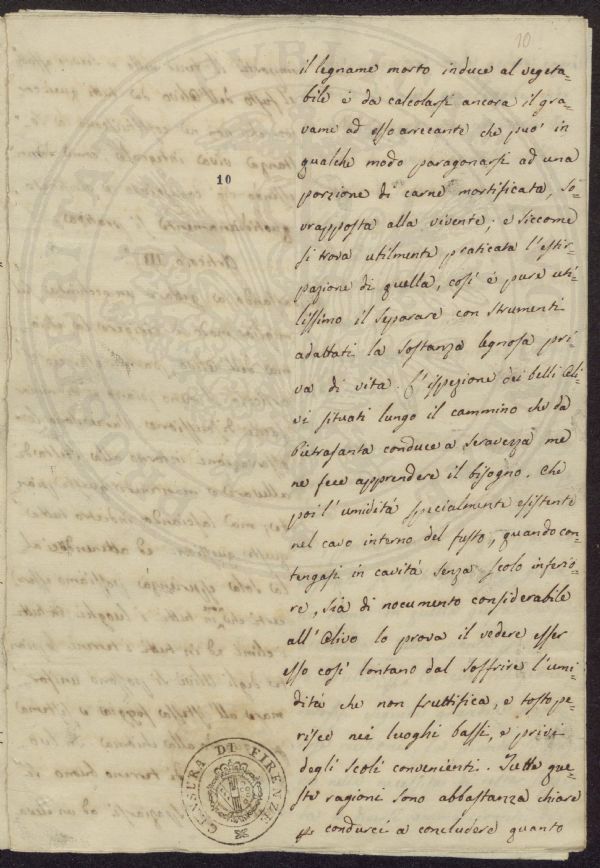 10
il legname morto induce al vegeta-
bile è da calcolarsi ancora il gra-
vame ad esso arrecante che può in
qualche modo paragonarsi ad una
porzione di carne mortificata, so-
vrapposta alla vivente; e siccome
si trova utilmente praticata l'estir-
pazione di quella, così è pure uti-
lissimo il separare con strumenti
adattati la sostanza legnosa pri-
va di vita. L'ispezione dei belli Oli-
vi situati lungo il cammino che da
Pietrasanta conduce a Seravezza me
ne fece apprendere il bisogno. Che
poi l'umidità specialmente esistente
nel cavo interno del fusto, quando con-
tengasi in cavità senza scolo inferio-
re, sia di nocumento considerabile
all'Olivo lo prova il vedere esser
esso così lontano dal soffrire l'umi-
dità che non fruttifica, e tosto pe-
risce nei luoghi bassi, e privi
degli scoli convenienti. Tutte que-
ste ragioni sono abbastanza chiare
condurci a concludere quanto
10
CENSURA DI FIRENZE